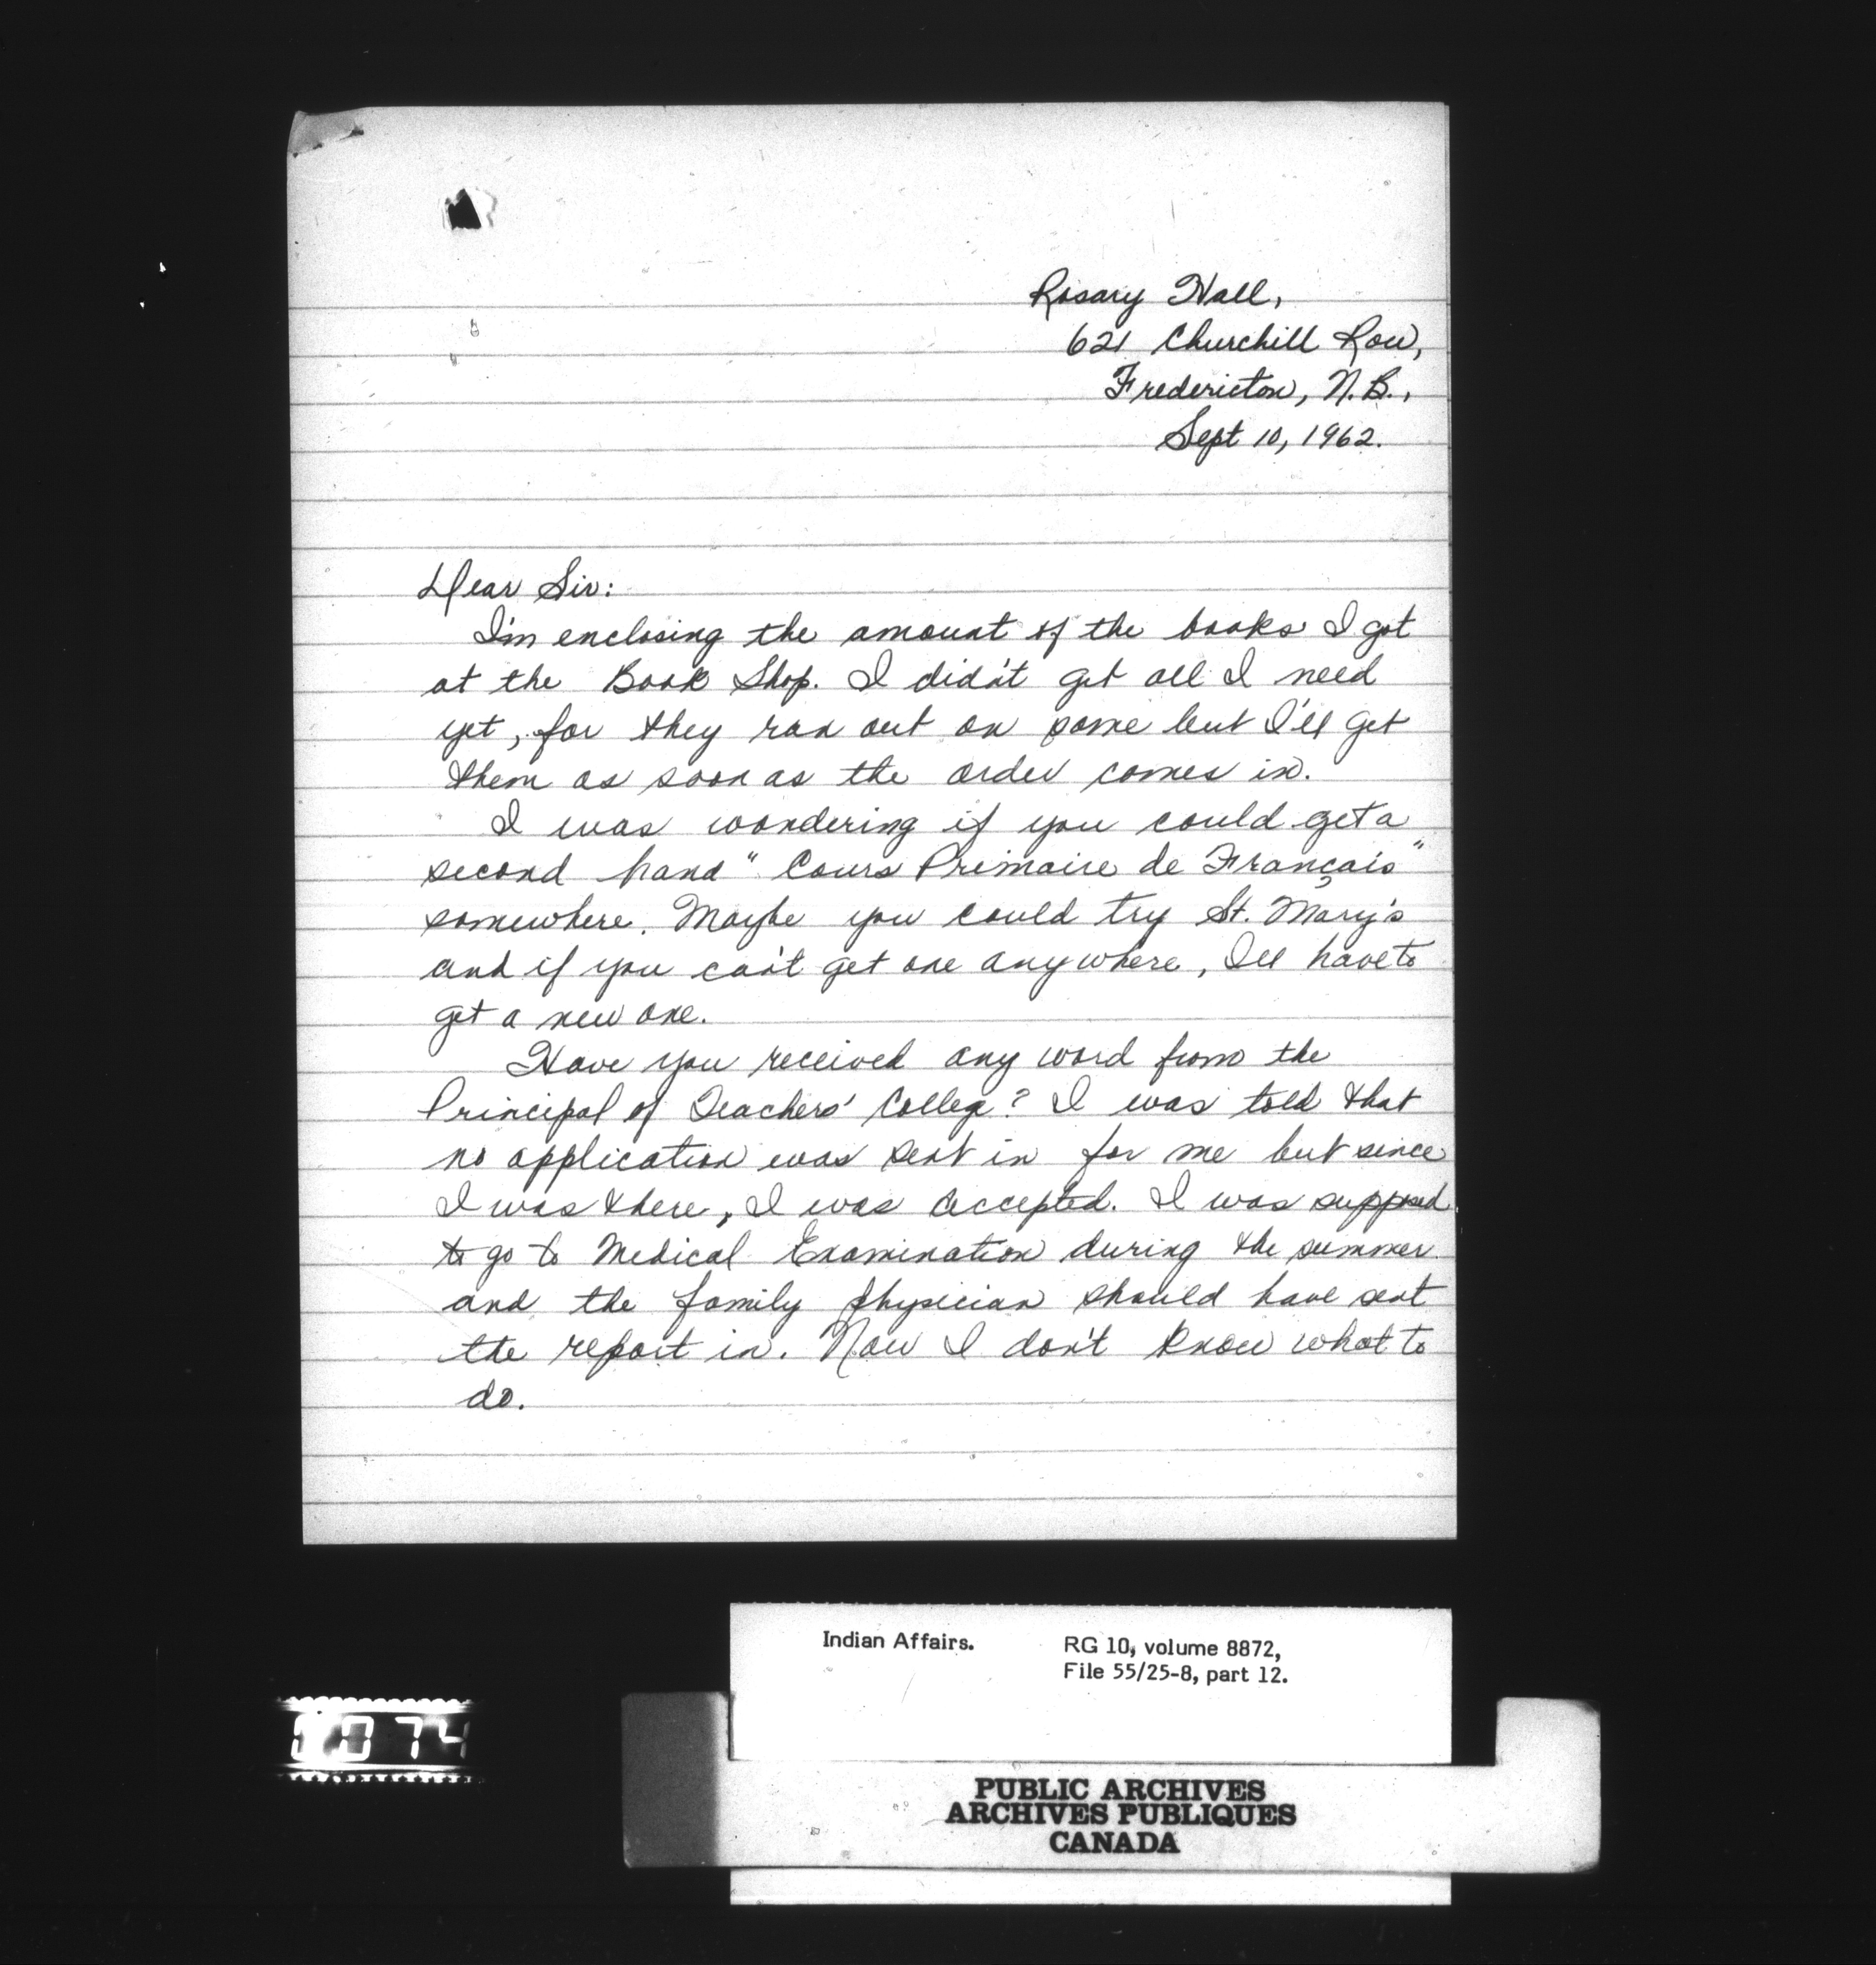 Rosary Hall,
621 Churchill Row,
Fredericton, N.B.,
Sept 10, 1962.
Dear Sir:
I'm enclosing the amount of the books I got
at the Book Shop. I didn't get all I need
yet, for they ran out on some but I'll get
them as soon as the order comes in.
I was wondering if you could get a
second hand "Cours Primaire de Français"
somewhere. Maybe you could try St. Mary's
and if you can't get one anywhere, I'll have to
get a new one.
Have you received any word from the
Principal of Teachers' College? I was told that
no application was sent in for me but since
I was there, I was accepted. I was supposed
to go to Medical Examination during the summer
and the family physician should have sent
the report in. Now I don't know what to
do.
Indian Affairs. RG 10, volume 8872,
File 55/25-8, part 12.
0074
PUBLIC ARCHIVES
ARCHIVES PUBLIQUES
CANADA